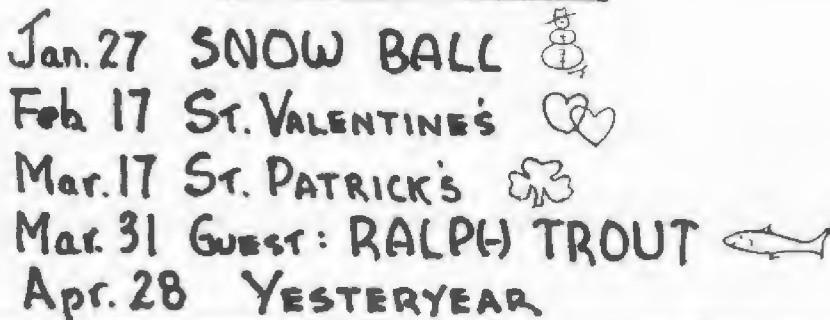 Jan. 27 SNOW BALL
Feb 17 ST. VALENTINE'S
Mar. 17 ST. PATRICK'S
Mar. 31 GUEST: RALPH TROUT
Apr. 28 YESTERYEAR